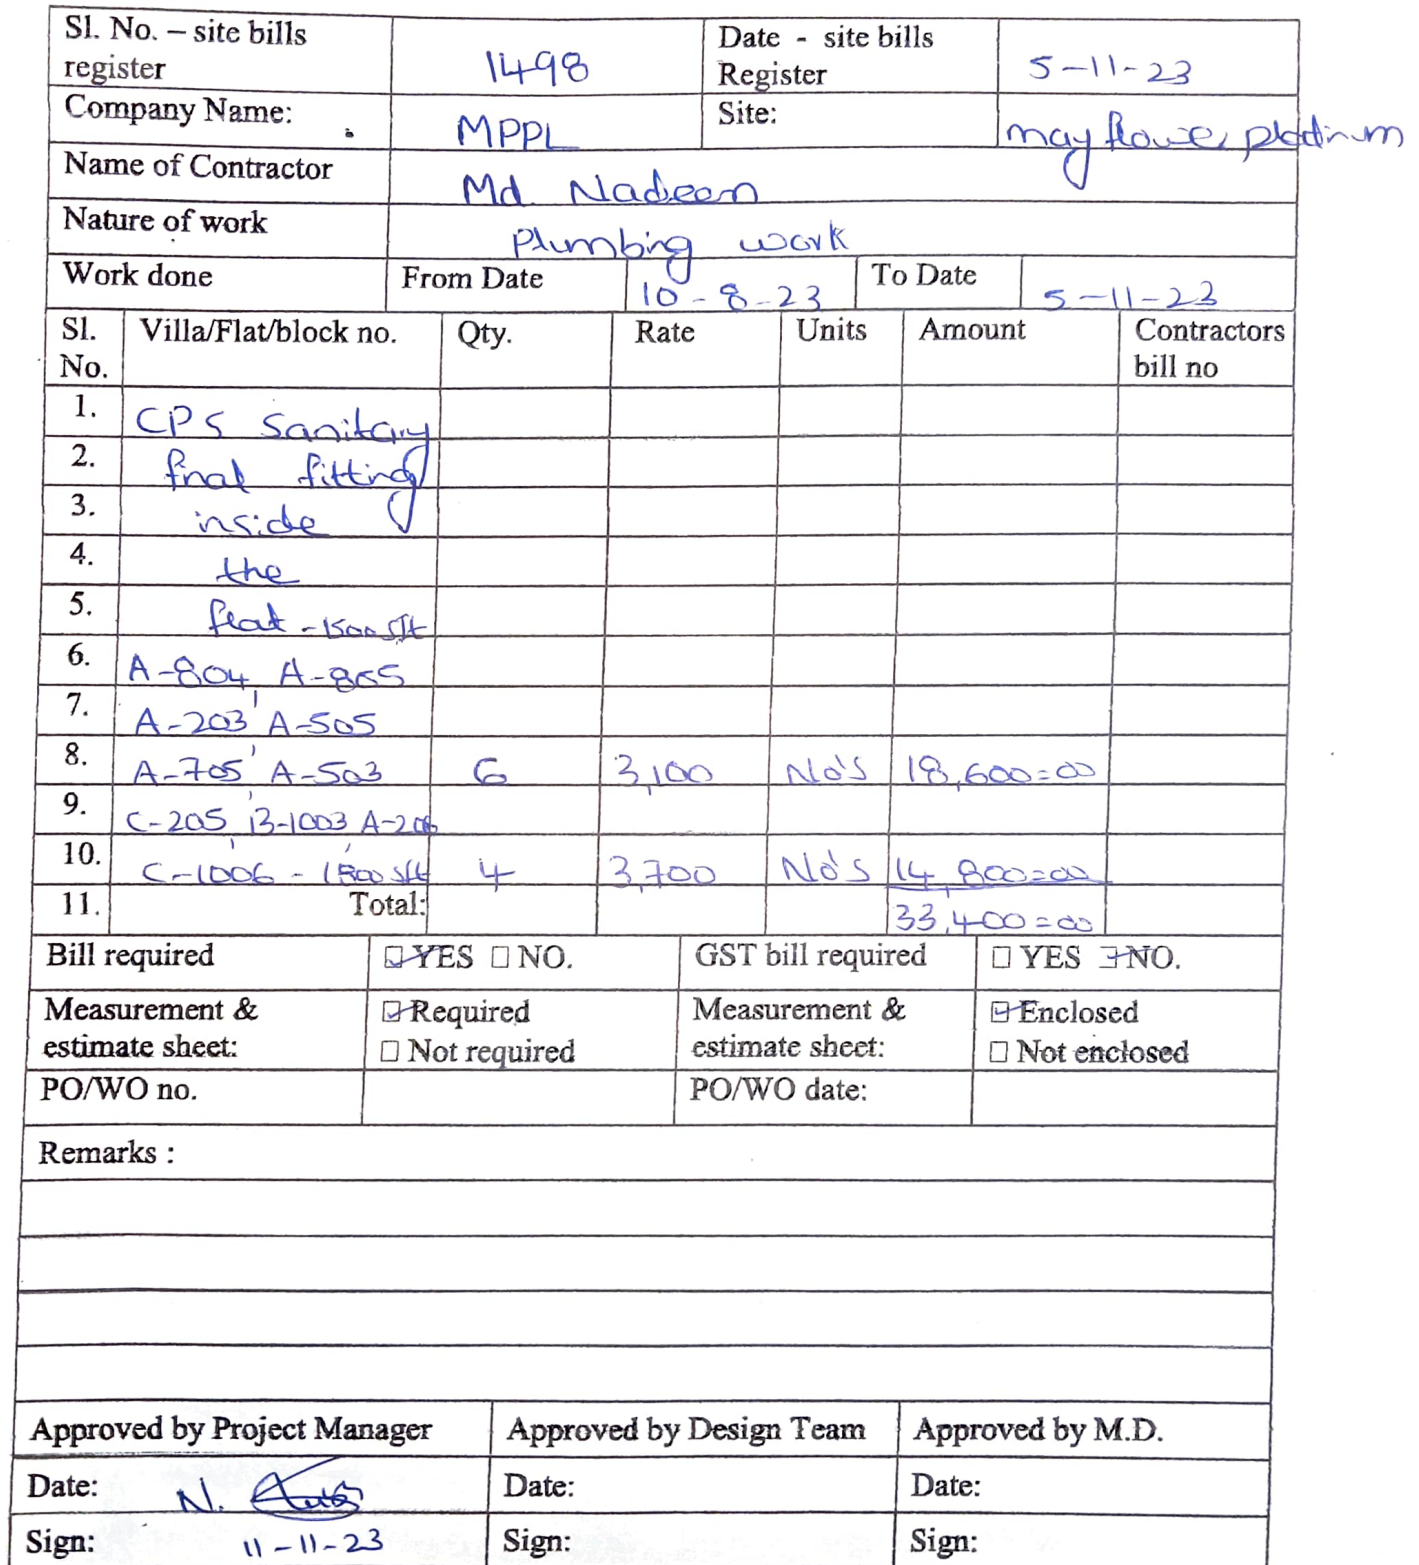 Sl. No. – site bills register 1498 Date - site bills Register 5-11-23
Company Name: MPPL Site: may flower platinum
Name of Contractor Md. Nadeem
Nature of work Plumbing work
Work done From Date 10-8-23 To Date 5-11-23
Sl. No. Villa/Flat/block no. Qty. Rate Units Amount Contractors bill no
1. CPS Sanitary
2. final fitting
3. inside
4. the
5. flat - 1500 sft
6. A-804, A-805
7. A-203, A-505
8. A-705, A-503 6 3,100 No's 18,600=00
9. C-205, B-1003, A-206
10. C-1006 - 1800 sft 4 3,700 No's 14,800=00
11. Total: 33,400=00
Bill required YES NO. GST bill required YES NO.
Measurement & estimate sheet: Required Not required Measurement & estimate sheet: Enclosed Not enclosed
PO/WO no. PO/WO date:
Remarks :
Approved by Project Manager Approved by Design Team Approved by M.D.
Date: N. Date: Date:
Sign: 11-11-23 Sign: Sign: